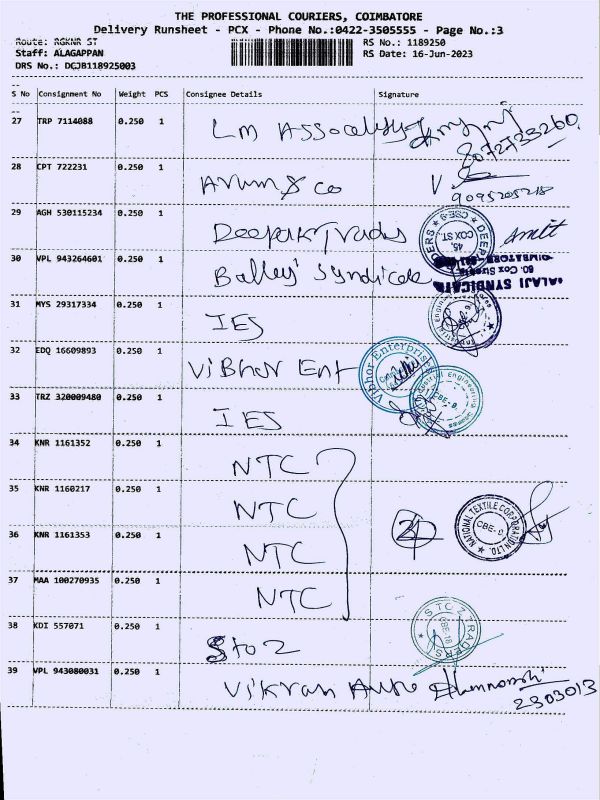 THE PROFESSIONAL COURIERS, COIMBATORE
Delivery Runsheet - PCX - Phone No.:0422-3505555 - Page No.:3
Route: RGKNR ST
RS No.: 1189250
Staff: ALAGAPPAN
RS Date: 16-Jun-2023
DRS No.: DGJB118925003
S No Consignment No Weight PCS Consignee Details Signature
27 TRP 7114088 0.250 1 LM
8072733260
28 CPT 722231 0.250 1 Arum & co
9095205218
29 AGH 530115234 0.250 1 Deepak Traders
45, COX ST. Amit
30 VPL 943264601 0.250 1 Balleji Syndicate
80. Cox Street
BALAJI SYNDICATE
31 MYS 29317334 0.250 1 IES
32 EDQ 16609893 0.250 1 Vibhor Ent
Vibhor Enterprise
33 TRZ 320009480 0.250 1 IES
CBE-9.
34 KNR 1161352 0.250 1 NTC
35 KNR 1160217 0.250 1 NTC
NATIONAL TEXTILE CORPORATION LTD.
CBE-9
36 KNR 1161353 0.250 1 NTC
37 MAA 100270935 0.250 1 NTC
38 KDI 557071 0.250 1 Stoz
STOZ TRADERS
CBE-18
39 VPL 943080031 0.250 1 Vikram Auto
2303013